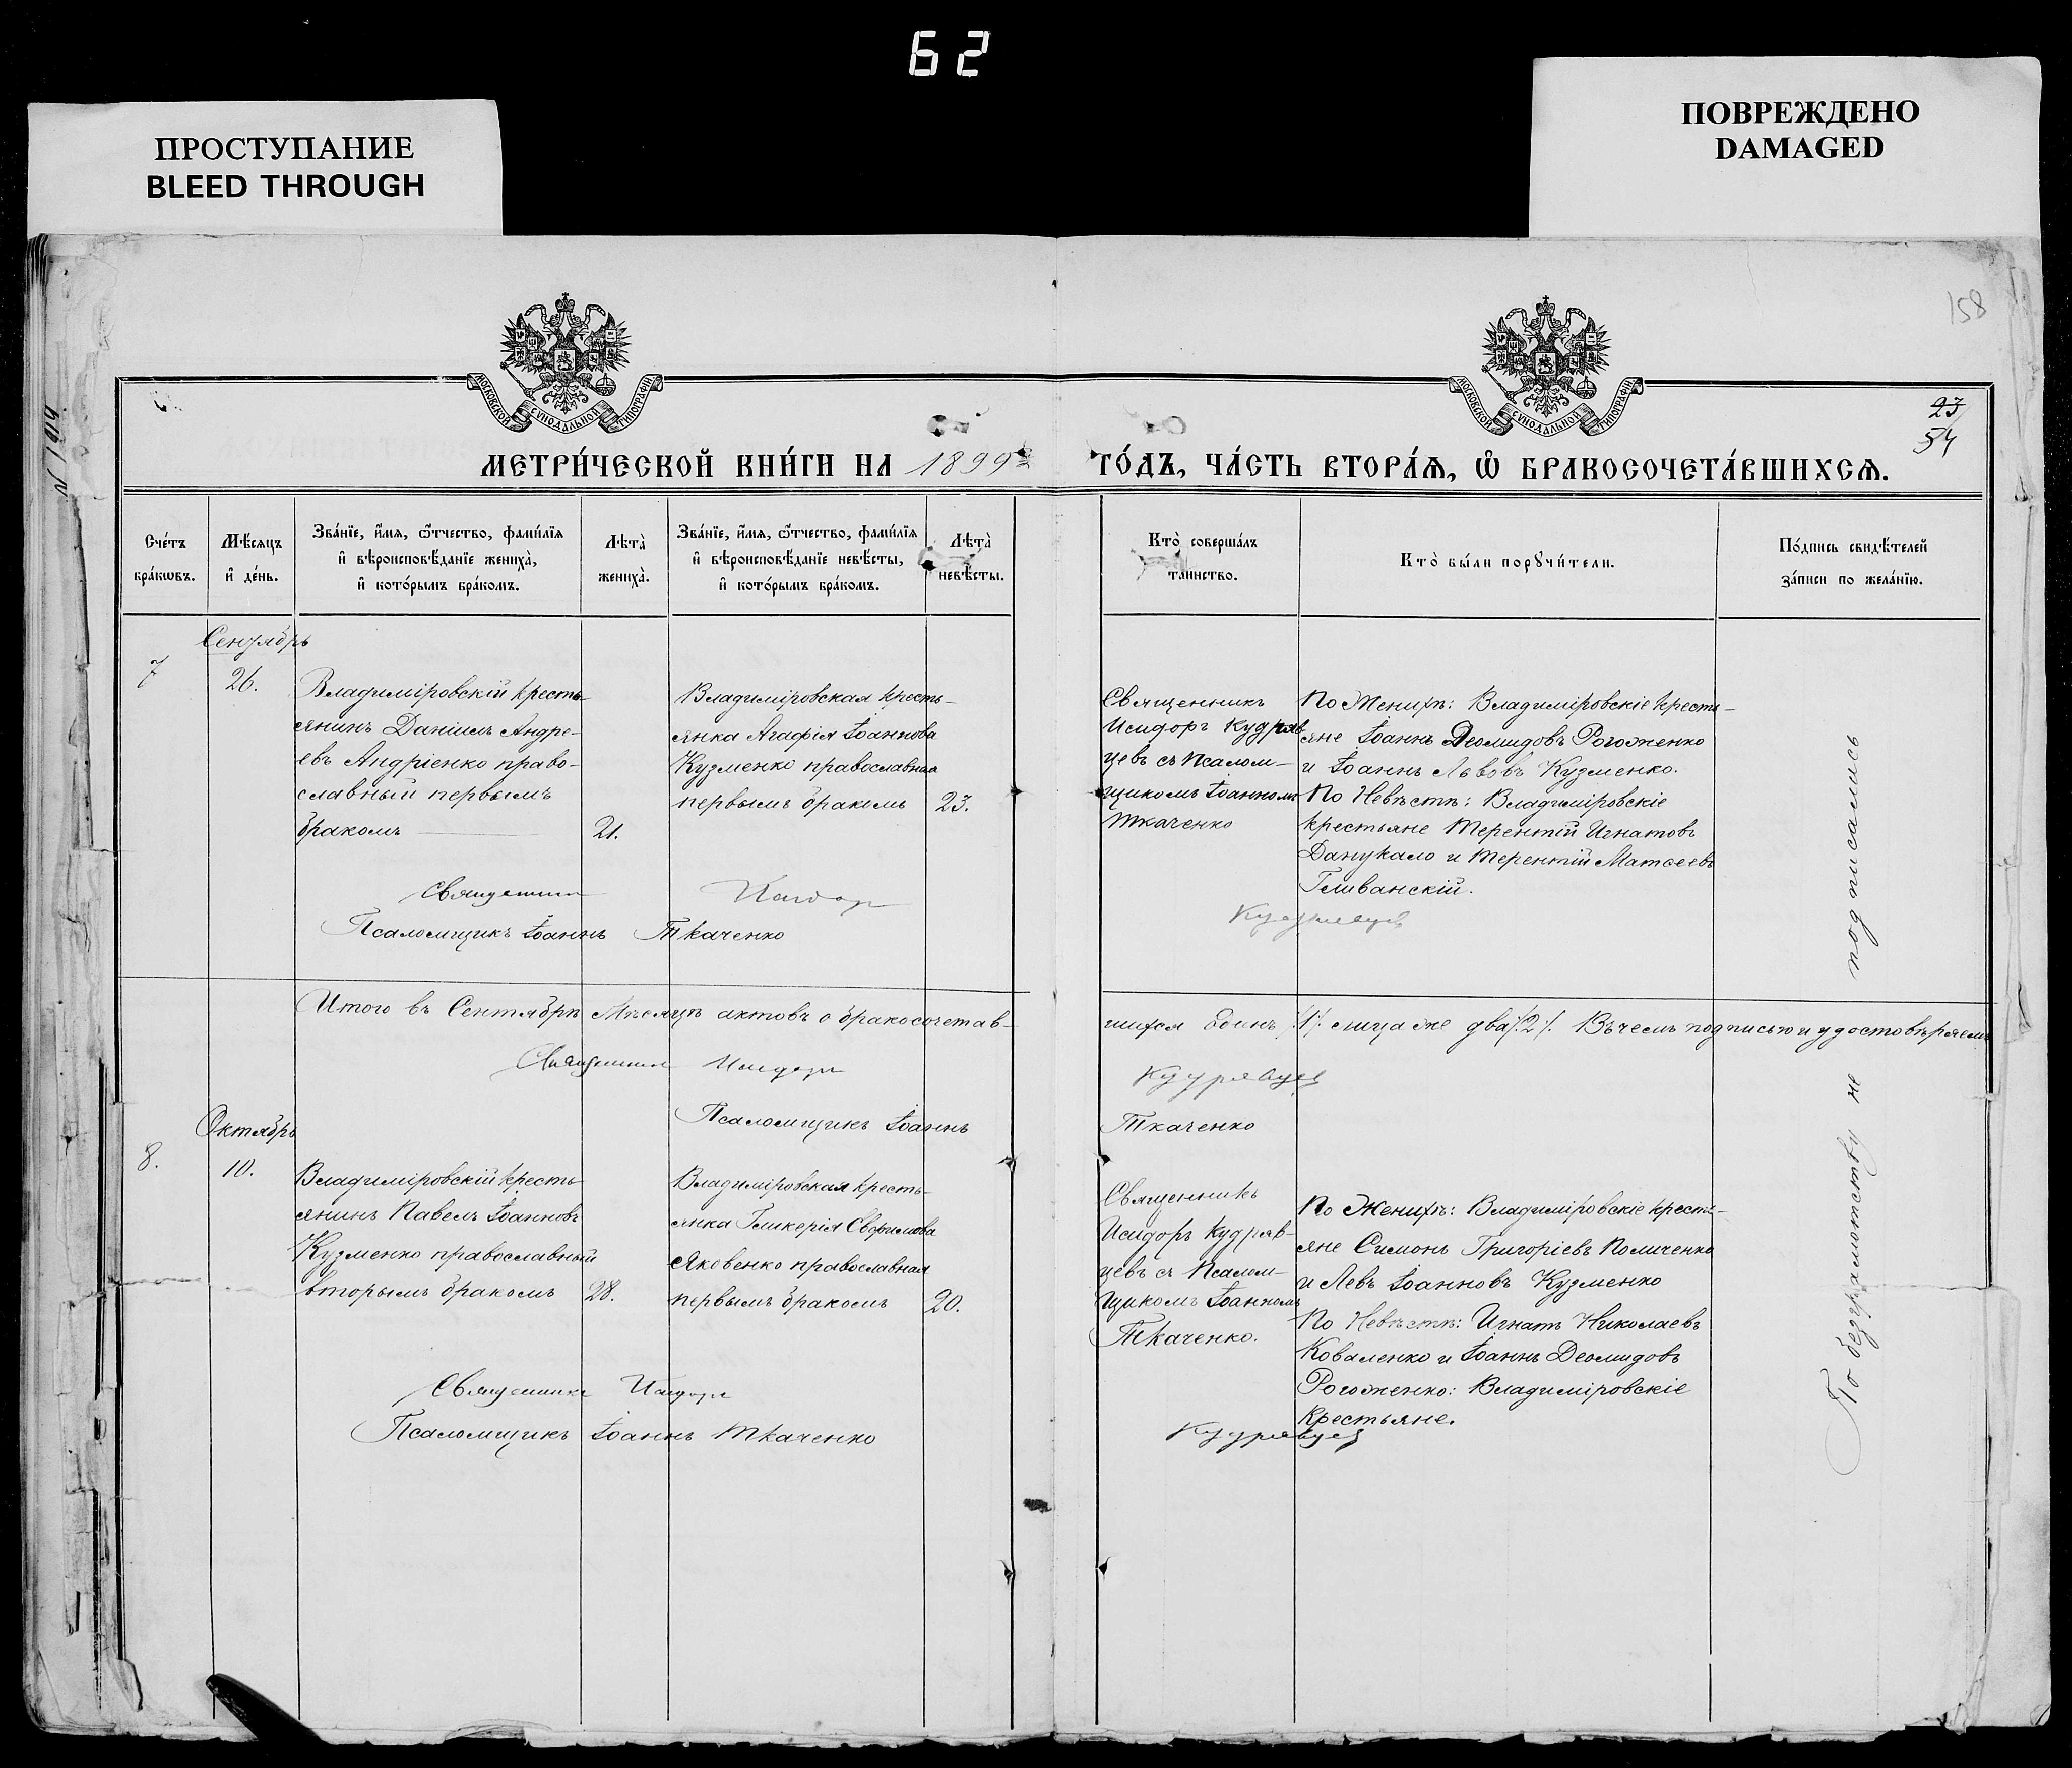 62
ПРОСТУПАНИЕ
BLEED THROUGH
ПОВРЕЖДЕНО
DAMAGED
158
МОСКОВСКОЙ СѴНОДАЛЬНОЙ ТИПОГРАФІИ
МОСКОВСКОЙ СѴНОДАЛЬНОЙ ТИПОГРАФІИ
23
54
МЕТРИ́ЧЕСКОЙ КНИ́ГИ НА 1899 ГО́ДЪ, ЧА́СТЬ ВТОРА́Ѧ, Ѽ БРАКОСОЧЕТА́ВШИХСѦ.
Сче́тъ
бра́кѡвъ.
Мѣ́сяцъ
и҆ де́нь.
Зва́нїе, и҆́мя, ѻ҆́тчество, фами́лїя
и҆ вѣроисповѣ́данїе жениха̀,
и҆ кото́рымъ бра́комъ.
Лѣта̀
жениха̀.
Зва́нїе, и҆́мя, ѻ҆́тчество, фами́лїя
и҆ вѣроисповѣ́данїе невѣ́сты,
и҆ кото́рымъ бра́комъ.
Лѣта̀
невѣ́сты.
Кто̀ соверша́лъ
та́инство.
Кто̀ бы́ли порꙋчи́тели.
По́дпись свидѣ́телей
за́писи по жела́нїю.
Сентябрь
7
26.
Владиміровскій кресть-
янинъ Даніилъ Андре-
евъ Андріенко право-
славный первымъ
бракомъ
21.
Владиміровская кресть-
янка Агафія Іоаннова
Кузменко православная
первымъ бракомъ
23.
Священникъ
Исидоръ Кудряв-
цевъ съ Псалом-
щикомъ Іоанномъ
Ткаченко
По Женихѣ: Владиміровскіе кресть-
яне Іоаннъ Деомидовъ Рогоженко
и Іоаннъ Львовъ Кузменко.
По Невѣстѣ: Владиміровскіе
крестьяне Терентій Игнатовъ
и Терентій Матѳеевъ
Гливанскій.
Священникъ Исидоръ Кудрявцевъ
Псаломщикъ Іоаннъ Ткаченко
Итого въ Сентябрѣ Мѣсяцѣ актовъ о бракосочетав-
шихся одинъ /1/. лица же два /2/. Въ чемъ подписью и удостовѣряемъ
Священникъ Исидоръ Кудрявцевъ
Псаломщикъ Іоаннъ Ткаченко
Октябрь
8.
10.
Владиміровскій кресть-
янинъ Павелъ Іоанновъ
Кузменко православный
вторымъ бракомъ
28.
Владиміровская кресть-
янка Гликерія Евфимова
Яковенко православная
первымъ бракомъ
20.
Священникъ
Исидоръ Кудряв-
цевъ съ Псалом-
щикомъ Іоанномъ
Ткаченко.
По Женихѣ: Владиміровскіе кресть-
яне Симонъ Григоріевъ Поличенко
и Левъ Іоанновъ Кузменко
По Невѣстѣ: Игнатъ Николаевъ
Коваленко и Іоаннъ Деомидовъ
Рогоженко: Владиміровскіе
крестьяне.
Священникъ Исидоръ Кудрявцевъ
Псаломщикъ Іоаннъ Ткаченко
По безграмотству не подписались